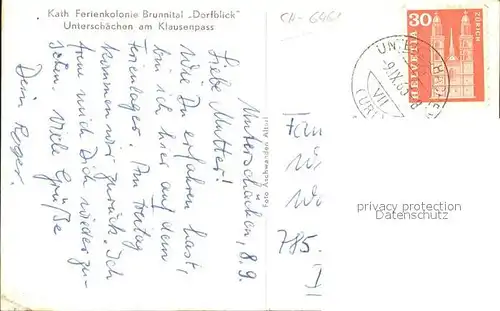 Kath Ferienkolonie Brunnital „Dorfblick"
Unterschächen am Klausenpass
Unterschächen, 8.9.
Liebe Mutter!
Wie Du erfahren hast,
bin ich hier auf dem
Ferienlager. Am Freitag
kommen wir zurück. Ich
freue mich Dich wieder zu
sehn. Viele Grüße
Dein Roger.
Foto Aschwanden Altdorf
CH-6461
30
HELVETIA
ZÜRICH
-9.IX.
VII
(URI)
Fam
785.
privacy protection
Datenschutz